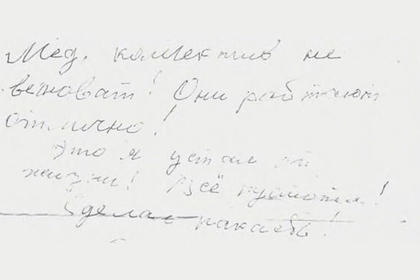 Мед. коллектив не
виноват! Они работают
отлично!
Это я устал от
жизни! Всё
Сделал